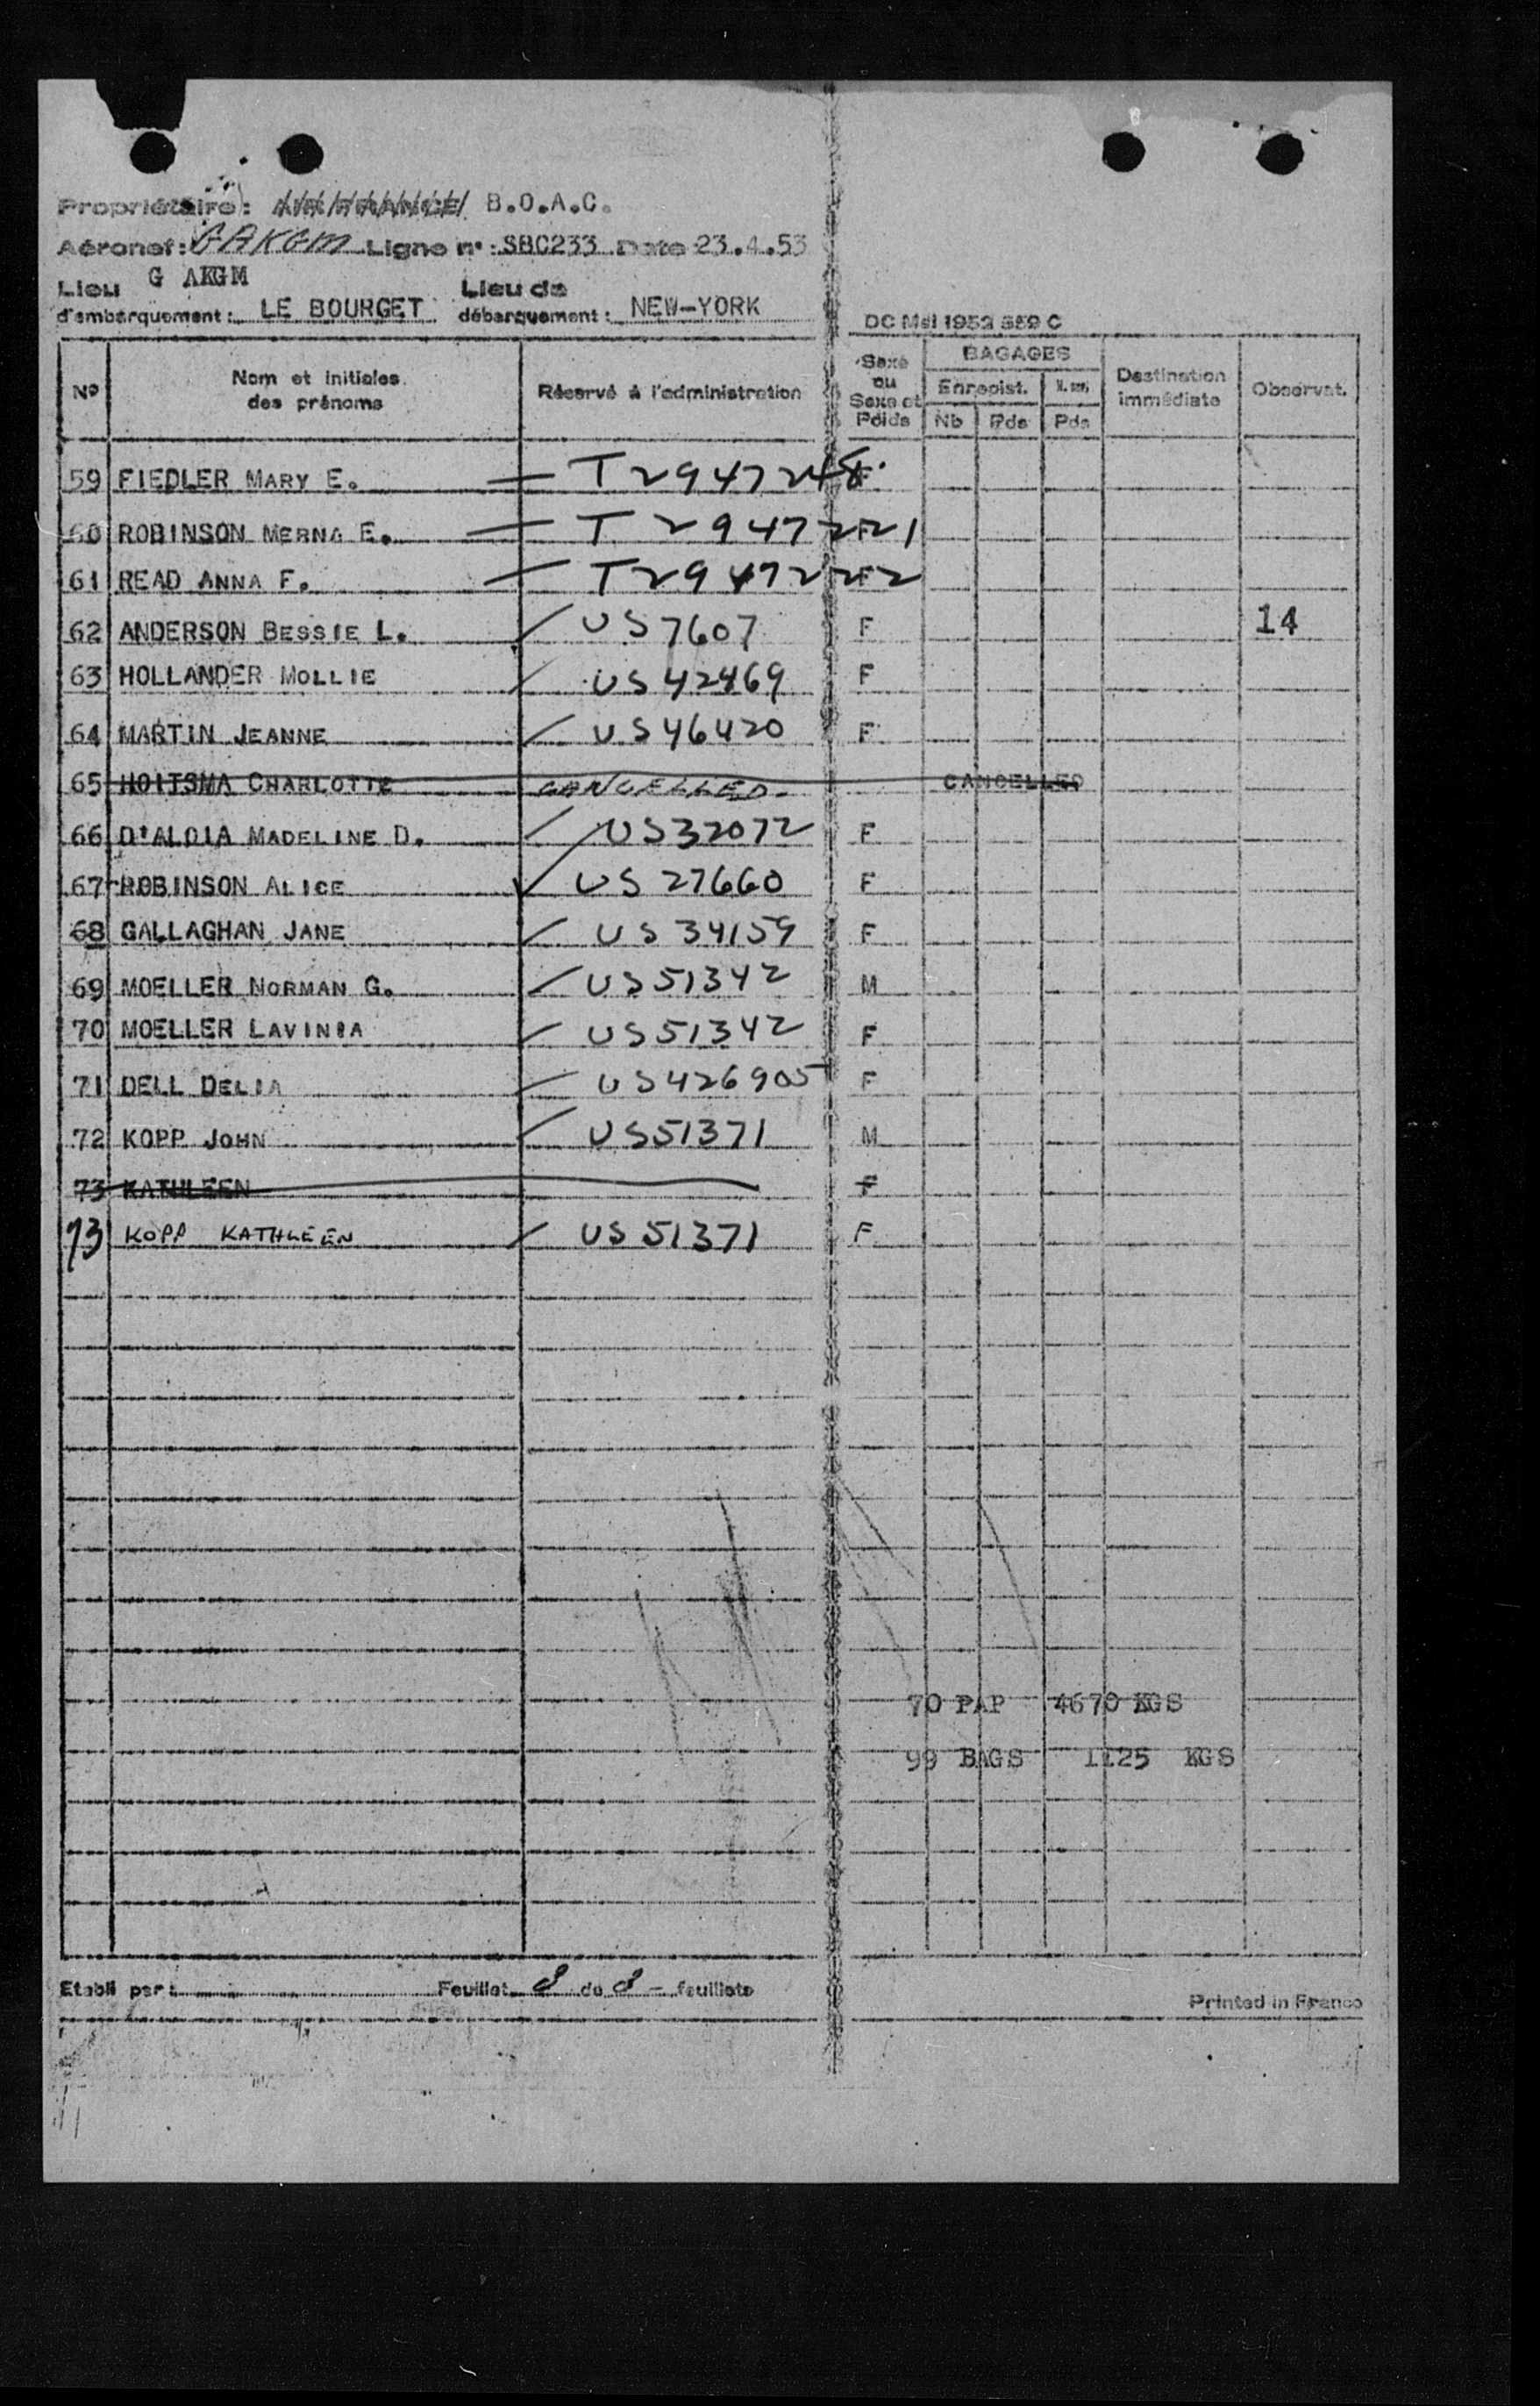 Propriétaire: AIR FRANCE B.O.A.C.
Aéronef: GAKGM Ligne n°: SBC233 Date 23.4.53
G AKGM
Lieu d'embarquement: LE BOURGET Lieu de débarquement: NEW-YORK
DC Mel 1952 559 C
N° Nom et initiales des prénoms Réservé à l'administration Sexe ou Sexe et Poids BAGAGES Enregist. Nb Pds Pds Destination immédiate Observat.
59 FIEDLER MARY E. T2947248 F
60 ROBINSON MERNA E. T2947221
61 READ ANNA F. T2947222
62 ANDERSON BESSIE L. US7607 F 14
63 HOLLANDER MOLLIE US42469 F
64 MARTIN JEANNE US46420 F
65 HOITSMA CHARLOTTE CANCELLED. CANCELLED
66 D'ALOIA MADELINE D. US32072 F
67 ROBINSON ALICE US 27660 F
68 GALLAGHAN JANE US 34159 F
69 MOELLER NORMAN G. US51342 M
70 MOELLER LAVINIA US51342 F
71 DELL DELIA US426905 F
72 KOPP JOHN US51371 M
73 KATHLEEN F
73 KOPP KATHLEEN US 51371 F
70 PAP 4670 KGS
99 BAGS 1125 KGS
Etabli par: Feuillet 8 de 8 - feuillets
Printed in France